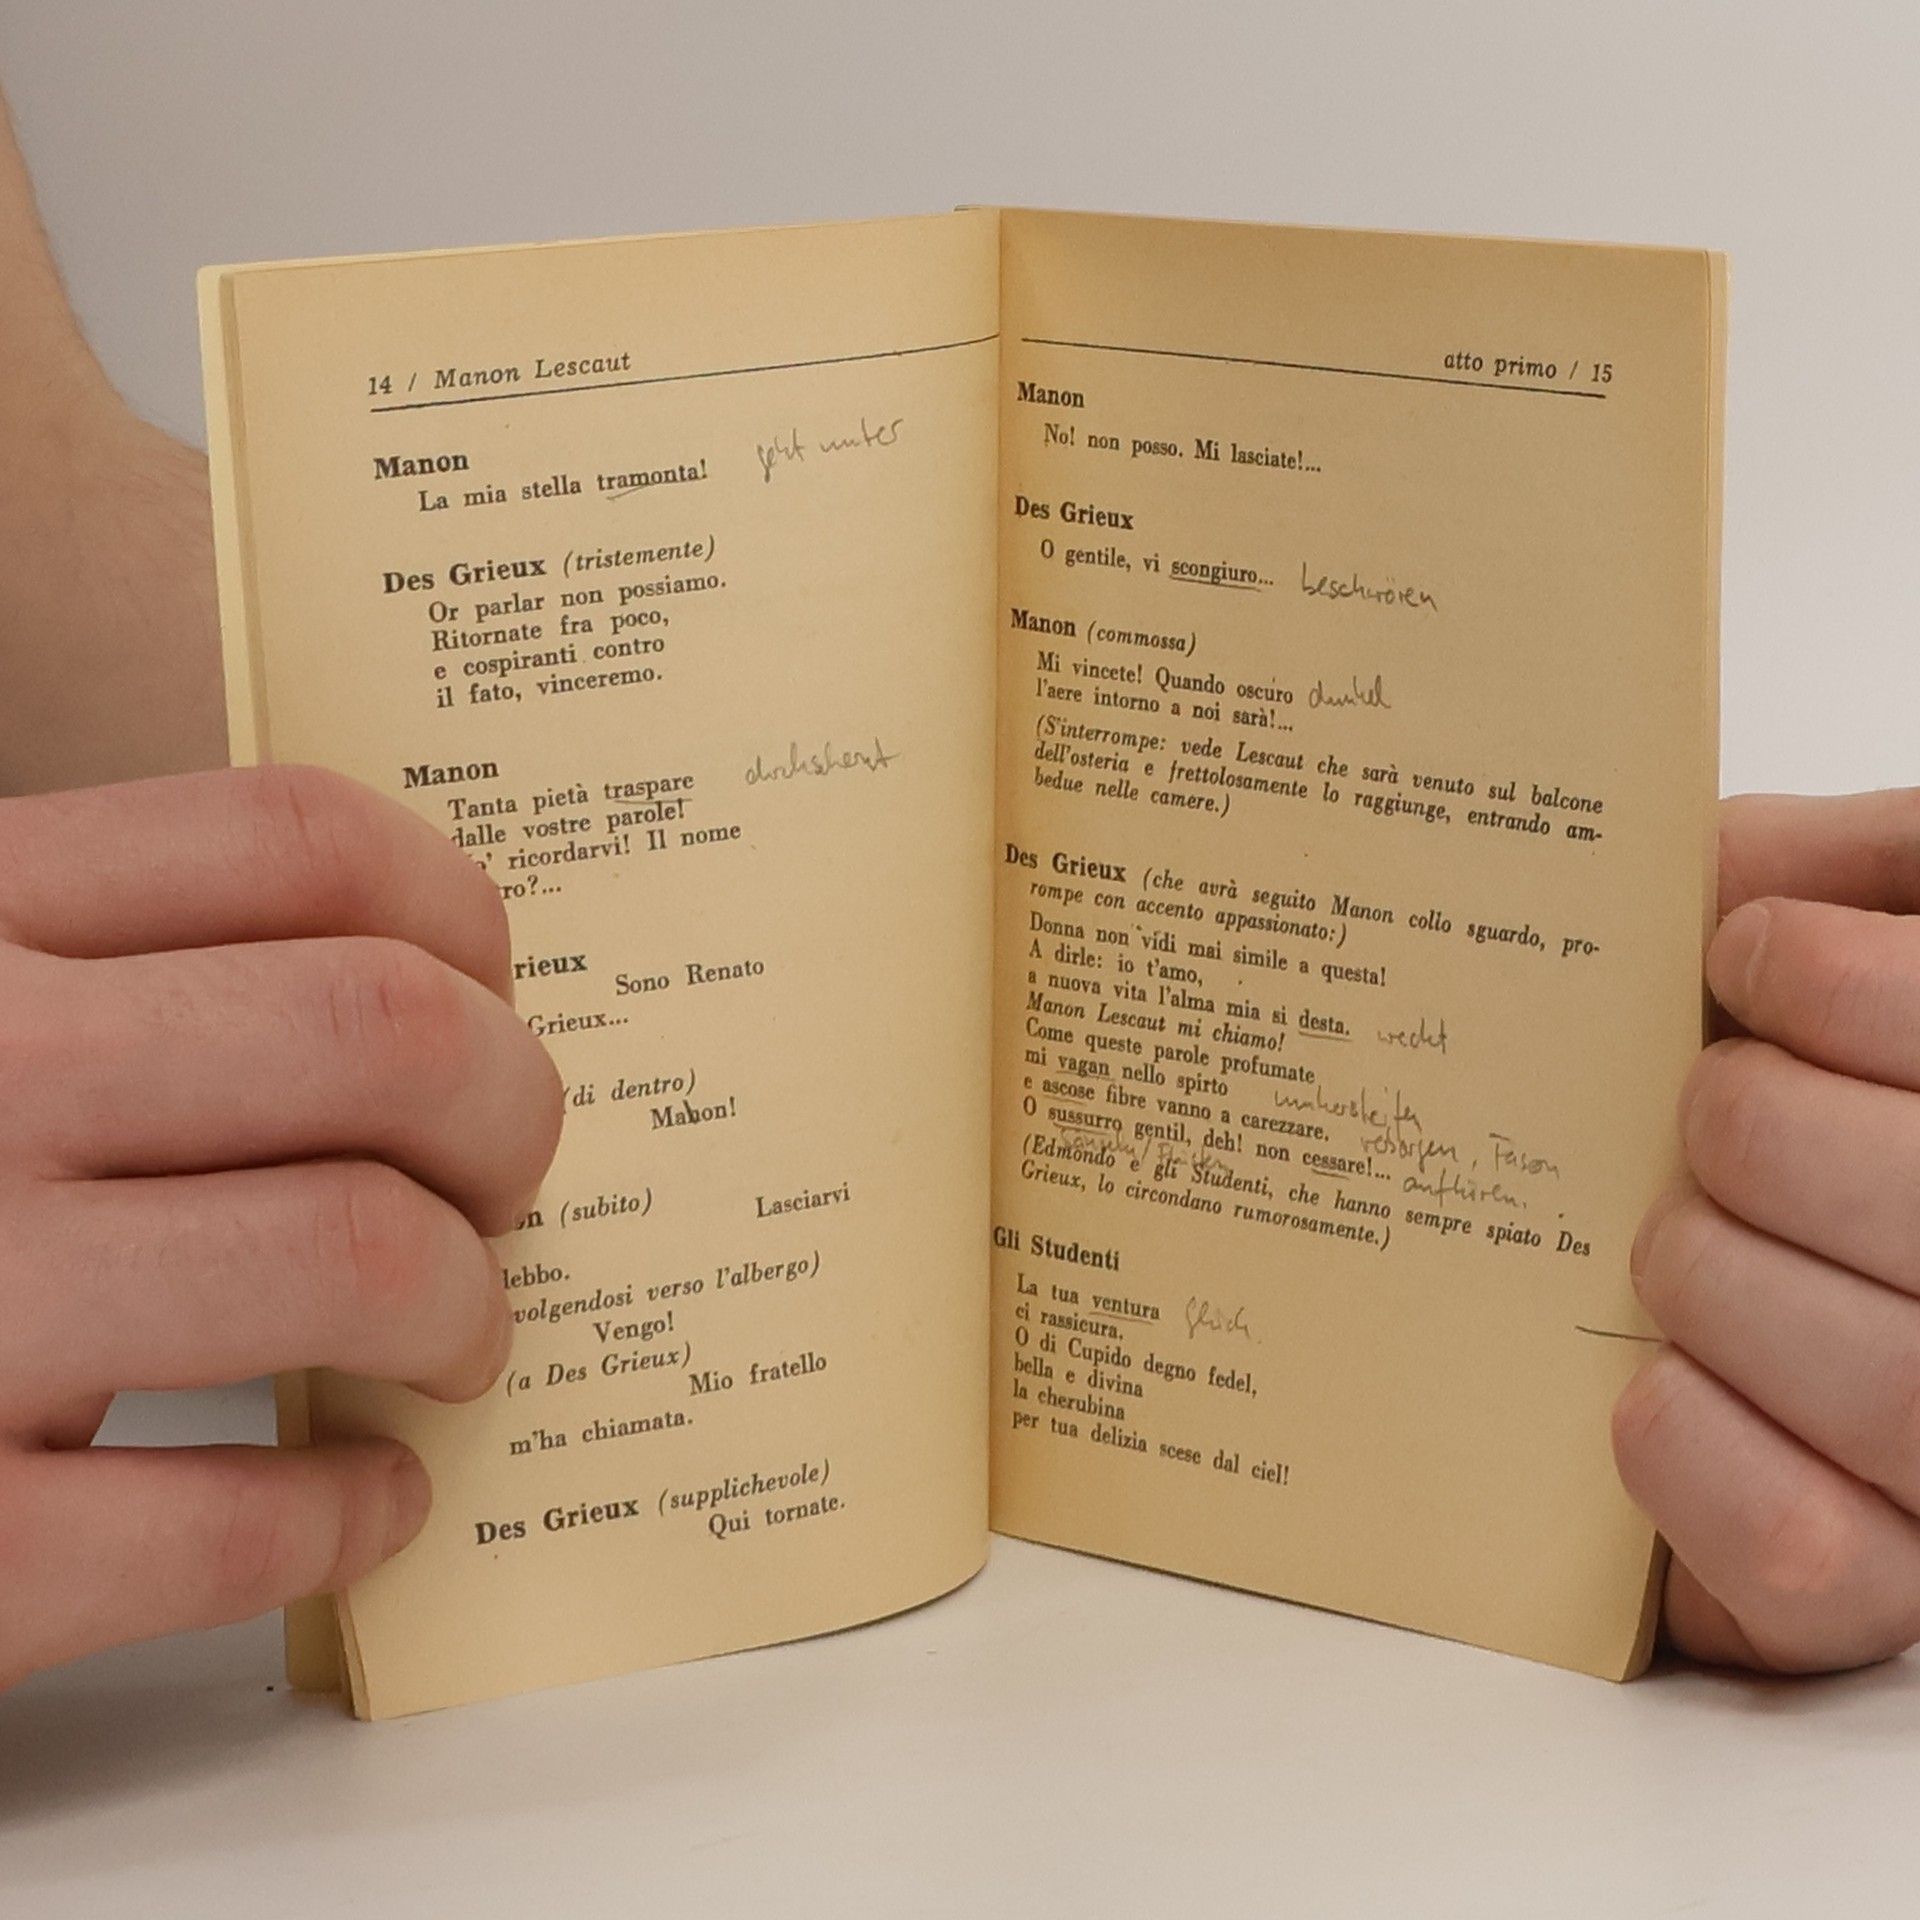 14 / Manon Lescaut
Manon
La mia stella tramonta! geht unter
Des Grieux (tristemente)
Or parlar non possiamo.
Ritornate fra poco,
e cospiranti contro
il fato, vinceremo.
Manon
Tanta pietà traspare
dalle vostre parole!
ricordarvi! Il nome
ro?...
rieux
Sono Renato
Grieux...
(di dentro)
Manon!
on (subito)
Lasciarvi
debbo.
volgendosi verso l'albergo)
Vengo!
(a Des Grieux)
Mio fratello
m'ha chiamata.
Des Grieux (supplichevole)
Qui tornate.
atto primo / 15
Manon
No! non posso. Mi lasciate!...
Des Grieux
O gentile, vi scongiuro... beschwören
Manon (commossa)
Mi vincete! Quando oscuro dunkel
l'aere intorno a noi sarà!...
(S'interrompe: vede Lescaut che sarà venuto sul balcone
dell'osteria e frettolosamente lo raggiunge, entrando am-
bedue nelle camere.)
Des Grieux (che avrà seguito Manon collo sguardo, pro-
rompe con accento appassionato:)
Donna non vidi mai simile a questa!
A dirle: io t'amo,
a nuova vita l'alma mia si desta. weckt
Manon Lescaut mi chiamo!
Come queste parole profumate
mi vagan nello spirto
e ascose fibre vanno a carezzare.
O sussurro gentil, deh! non cessare!... aufhören.
(Edmondo e gli Studenti, che hanno sempre spiato Des
Grieux, lo circondano rumorosamente.)
Gli Studenti
La tua ventura Glück
ci rassicura.
O di Cupido degno fedel,
bella e divina
la cherubina
per tua delizia scese dal ciel!